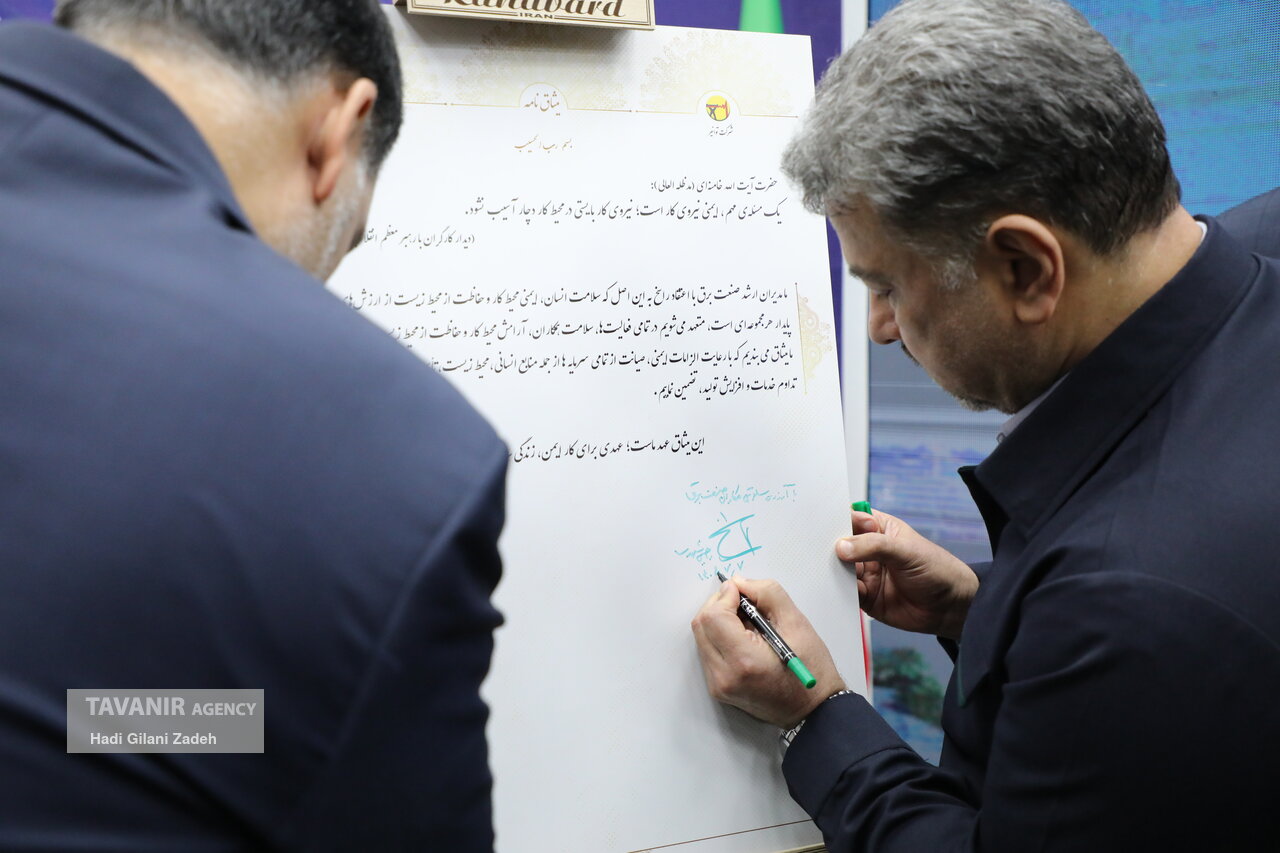 Kanavard
IRAN
میثاق نامه
شرکت توانیر
بسم رب الحبیب
حضرت آیت الله خامنه‌ای (مدظله العالی):
یک مسئله‌ی مهم، ایمنی نیروی کار است؛ نیروی کار بایستی در محیط کار دچار آسیب نشود.
(دیدار کارگران با رهبر معظم
ما مدیران ارشد صنعت برق با اعتقاد راسخ به این اصل که سلامت انسان، ایمنی محیط کار و حفاظت از محیط زیست از ارزش‌های
پایدار هر مجموعه‌ای است، متعهد می‌شویم در تمامی فعالیت‌ها، سلامت همکاران، آرامش محیط کار و حفاظت از محیط
ما میثاق می بندیم که با رعایت الزامات ایمنی، صیانت از تمامی سرمایه ها از جمله منابع انسانی، محیط زیست،
تداوم خدمات و افزایش تولید، تضمین نماییم.
این میثاق عهد ماست؛ عهدی برای کار ایمن، زندگی
صنعت برق
TAVANIR AGENCY
Hadi Gilani Zadeh